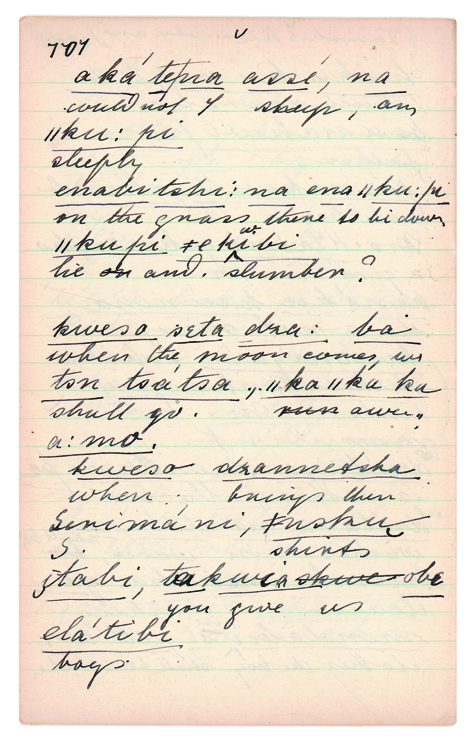 707
aká tepra assé, na
could not I sleep, am
ǁku: pi
sleeply
enabitshi: na ena ǁku: pi
on the grass there to lie down
ǁkupi ǂekibi
lie on and. slumber?
kweso seta dza: ba
when the moon comes, we
tsn tsátsa, ǁkaǁka ka
shall go. run
a: mo.
kweso dzannetsha
when brings then
Serimáni,
S. shirts
tabi, obe
you give us
elátibi
boys